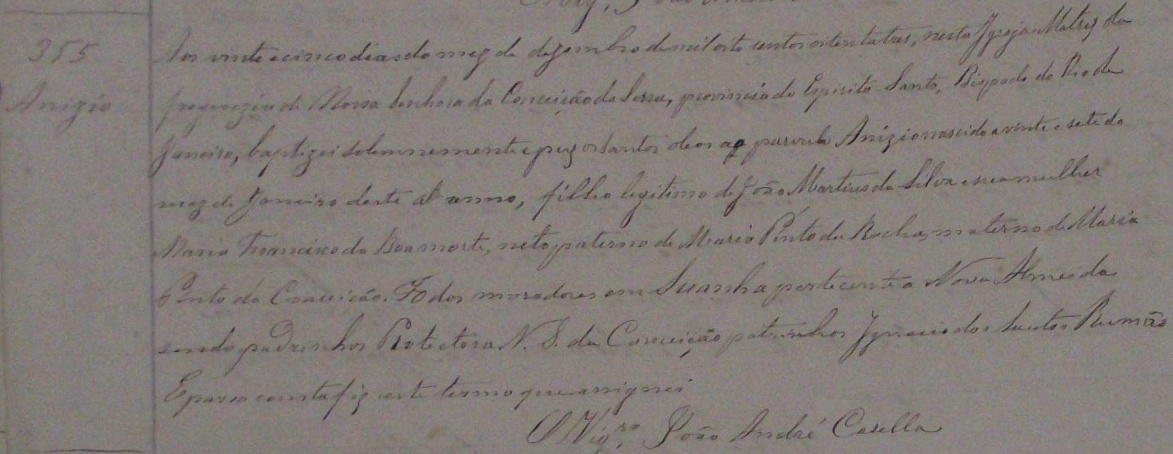 355
Anizio
Aos vinte e cinco dias do mez de dezembro de mil oito centos oitenta tres, nesta Igreja Matriz da
freguezia de Nossa Senhora da Conceição da Serra, provincia do Espirito Santo, Bispado do Rio de
Janeiro, baptizei solemnemente e puz os Santos oleos ao parvulo Anizio nascido a vinte e sete do
mez de Janeiro deste anno, filho legitimo de João Martins da Silva e sua mulher
Maria Francisca da Boamorte, neto paterno de Maria Pinto da Rocha, materno de Maria
Pinto da Conceição. Todos moradores em pertecente a Nova Almeida
sendo padrinhos Protectora N. S. da Conceição patrinhos Ignacio dos Santos Rumão
E para constar fiz este termo que assignei
O Vigr.º João André Casella